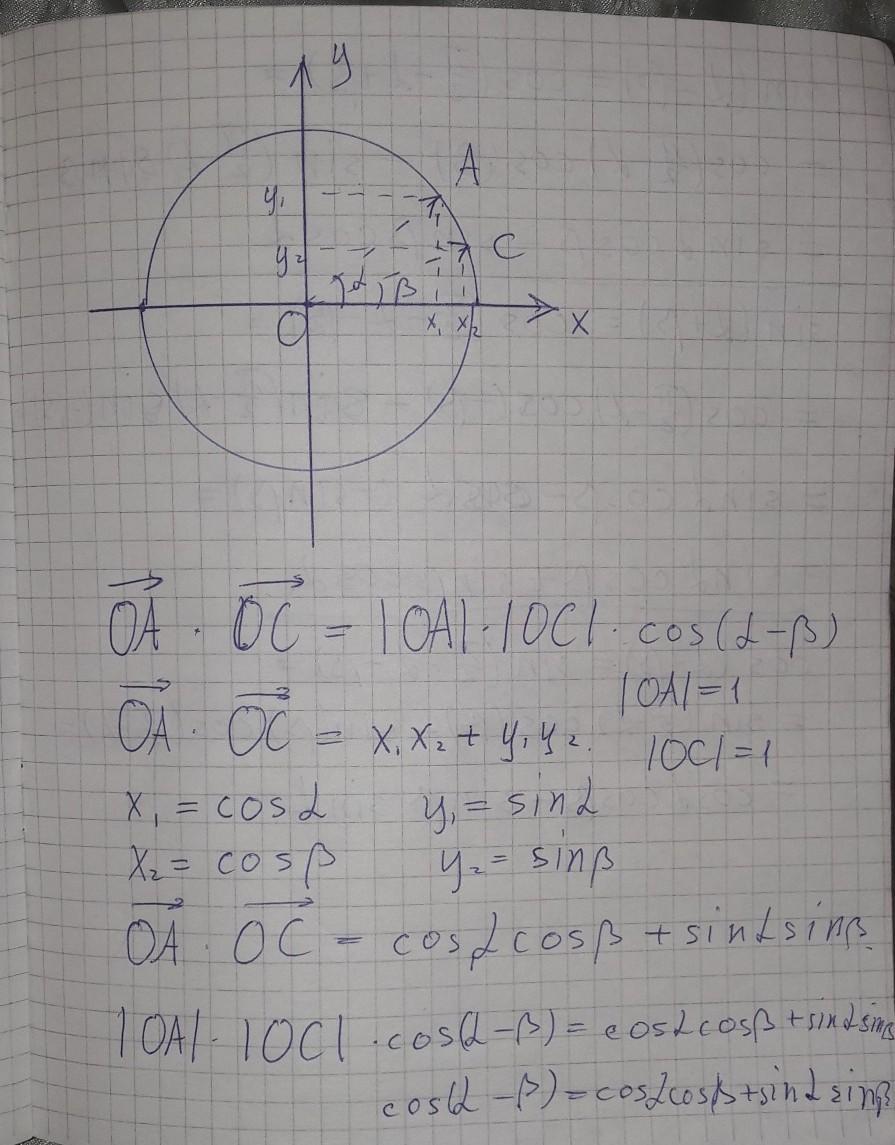 y
A
y₁
C
y₂
α β
O x₁ x₂ x
OA · OC = |OA| · |OC| · cos(α-β)
|OA|=1
OA · OC = x₁x₂ + y₁y₂.
|OC|=1
x₁ = cosα y₁ = sinα
x₂ = cosβ y₂ = sinβ
OA · OC = cosαcosβ + sinαsinβ
|OA| · |OC| · cos(α-β) = cosαcosβ + sinαsinβ
cos(α-β) = cosαcosβ + sinαsinβ